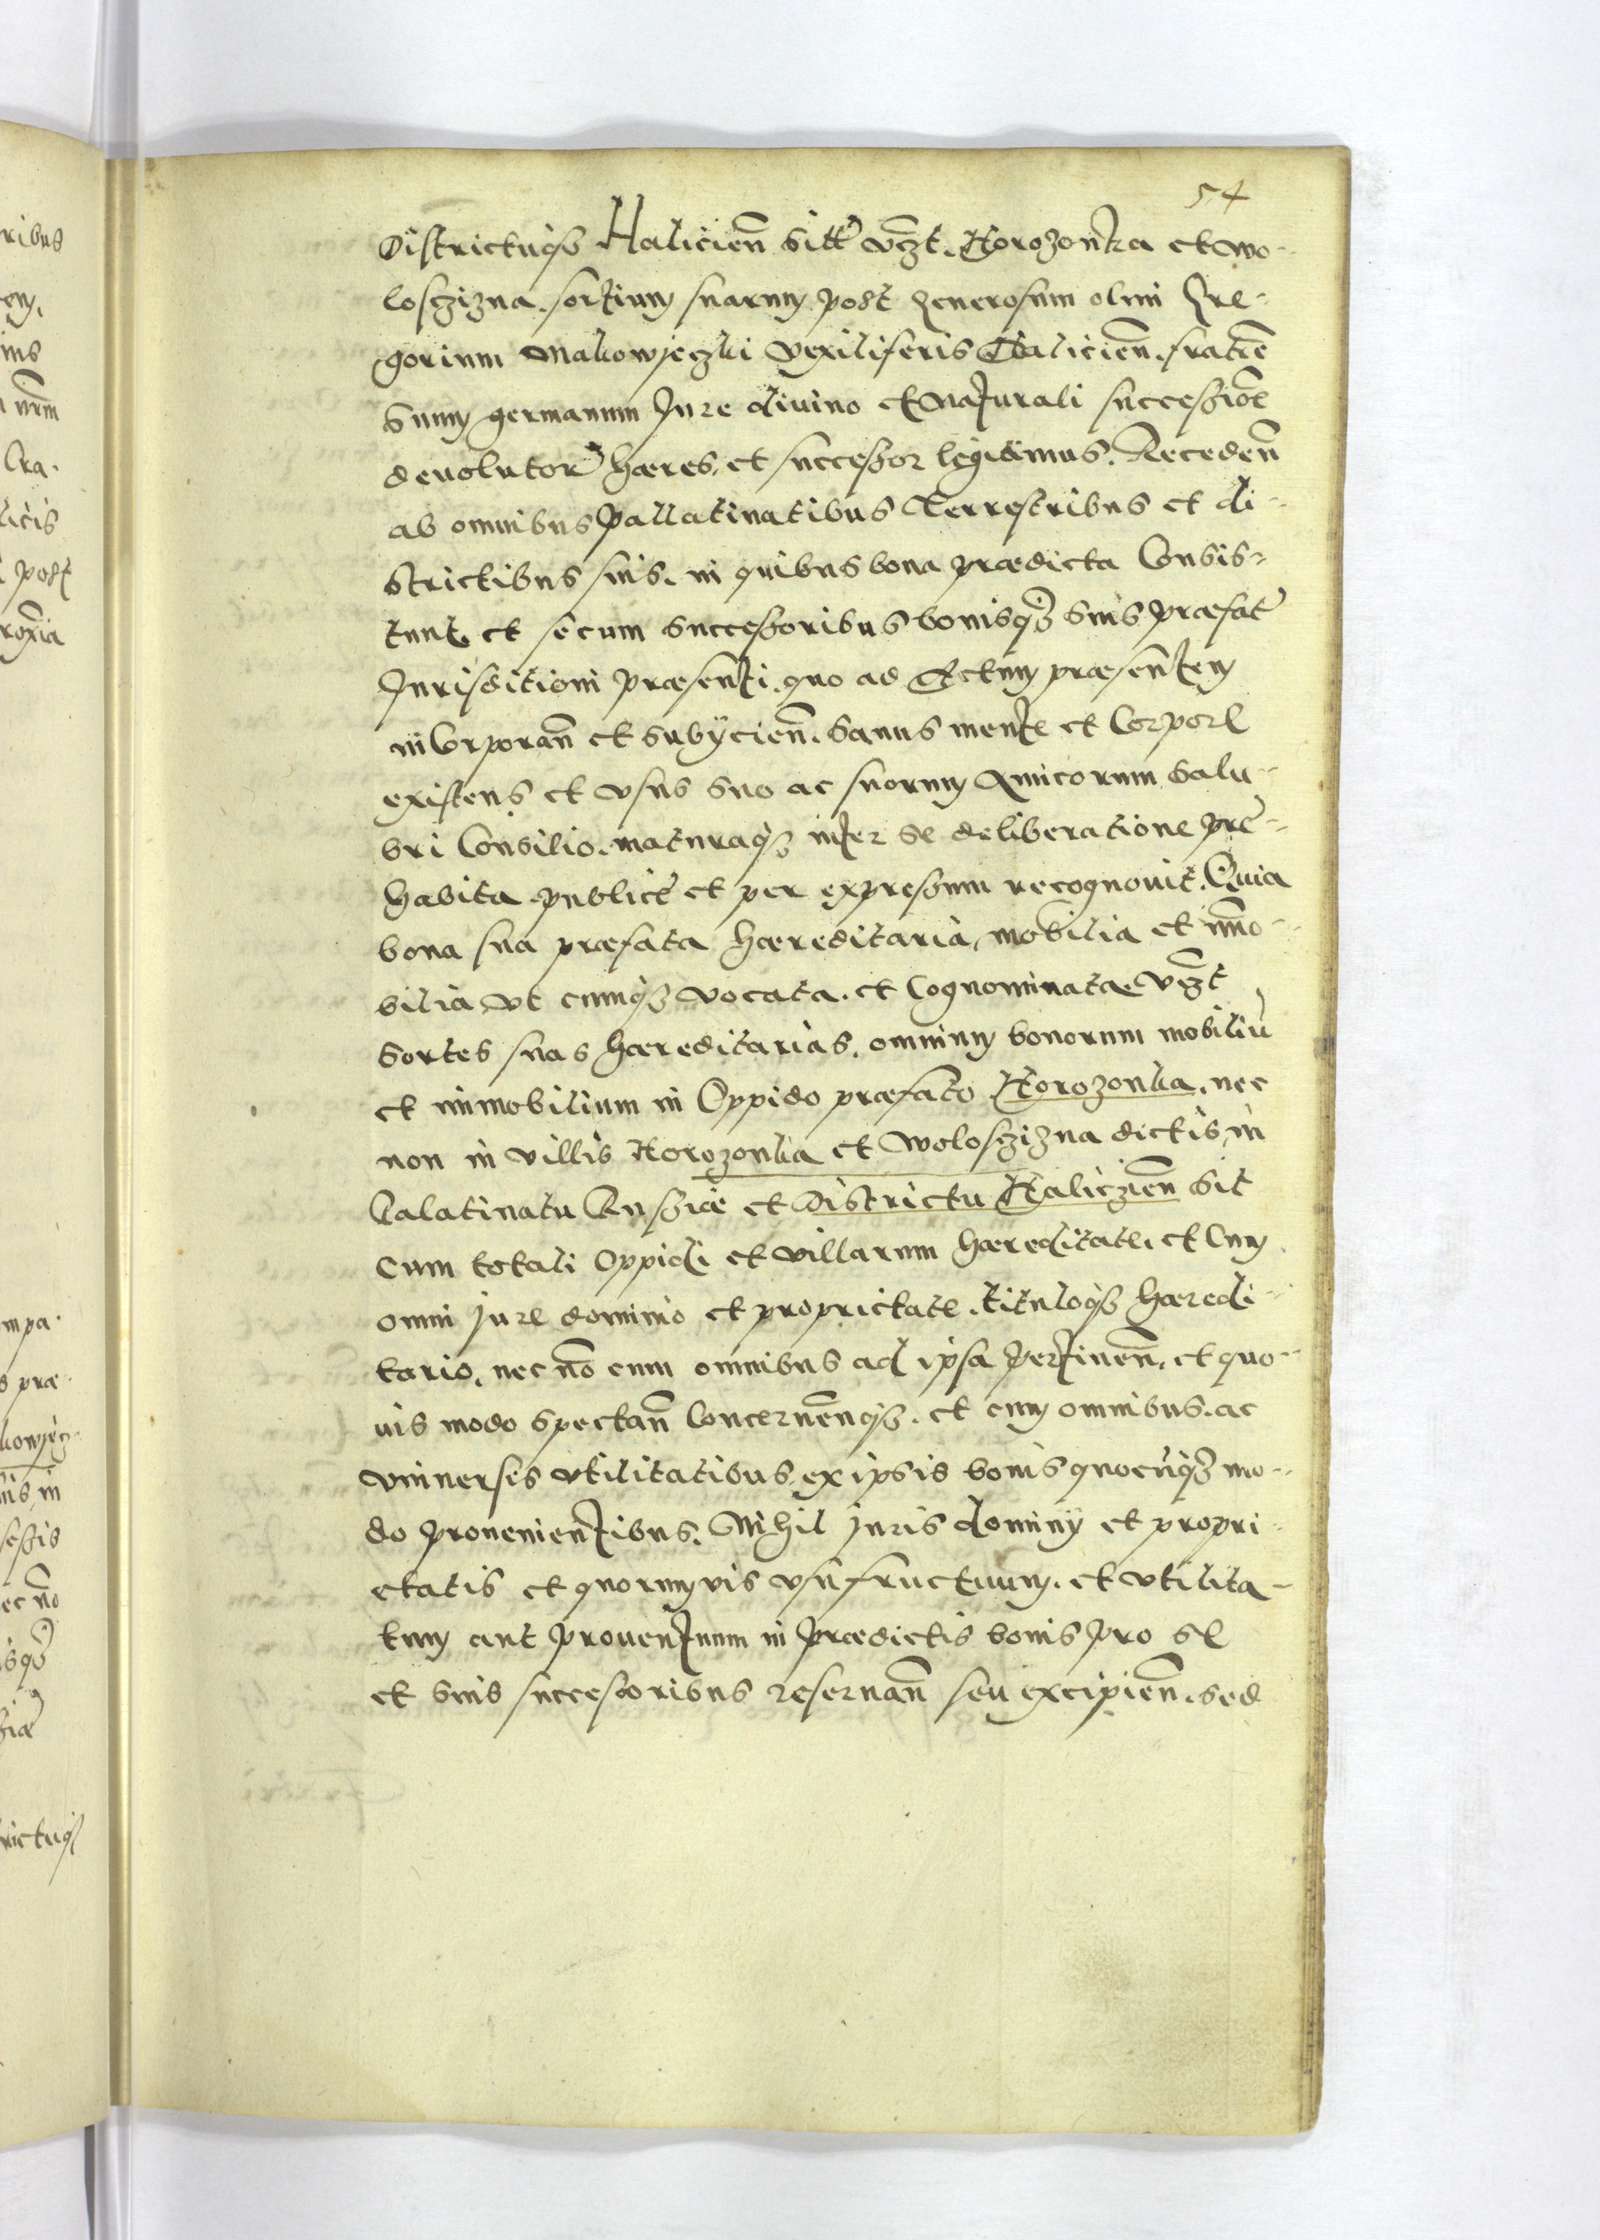 54
Districtuq3 Halicień sitt̃ vz̃t. Horozonka et Wo-
losczizna. sortium suarum post Generosum olim Gre-
gorium Makowieczki Vexiliferis Halicień. fratrẽ
suum germanum Jure diuino et Naturali successiõe
deuolutor̃ hæres, et successor legittimus. Recedeñ
ab omnibus Pallatinatibus Terrestribus et di-
strictibus suis. in quibus bona prædicta Consis-
tunt, et se cum successoribus bonisq3 suis præfat̃
Jurisditioni præsenti, quo ad Actum præsentem
inCorporañ et subijcień. Sanus mente et Corpore
existens et vsus suo ac suorum Amicorum salu-
bri Consilio. maturaq3 inter se deliberatione præ-
habita. publicẽ et per expressum recognouit. Quia
bona sua præfata hæreditaria, mobilia et im̃o-
bilia vt cumq3 vocata. et Cognominata. vz̃t
Sortes suas hæreditarias. omnium bonorum mobiliũ
et immobilium in Oppido præfato Horozonka. nec
non in villis Horozonka et Wolosczizna dictis, in
Palatinatu Russiæ et Districtu Haliczień sit̃
Cum totali Oppidi et villarum hæreditate. et Cum
omni Jure dominio et proprietate. tituloq3 hæredi-
tario. nec nõ cum omnibus ad ipsa pertineñ. et quo-
uis modo spectañ Concerneñq3. et cum omnibus. ac
vniuersis vtilitatibus, ex ipsis bonis quocũq3 mo-
do prouenientibus. Nihil Juris dominij et propri-
etatis et quorumvis vsufructuum. et vtilita-
tum aut prouentuum in prædictis bonis pro se
et suis successoribus reseruañ seu excipień. sed